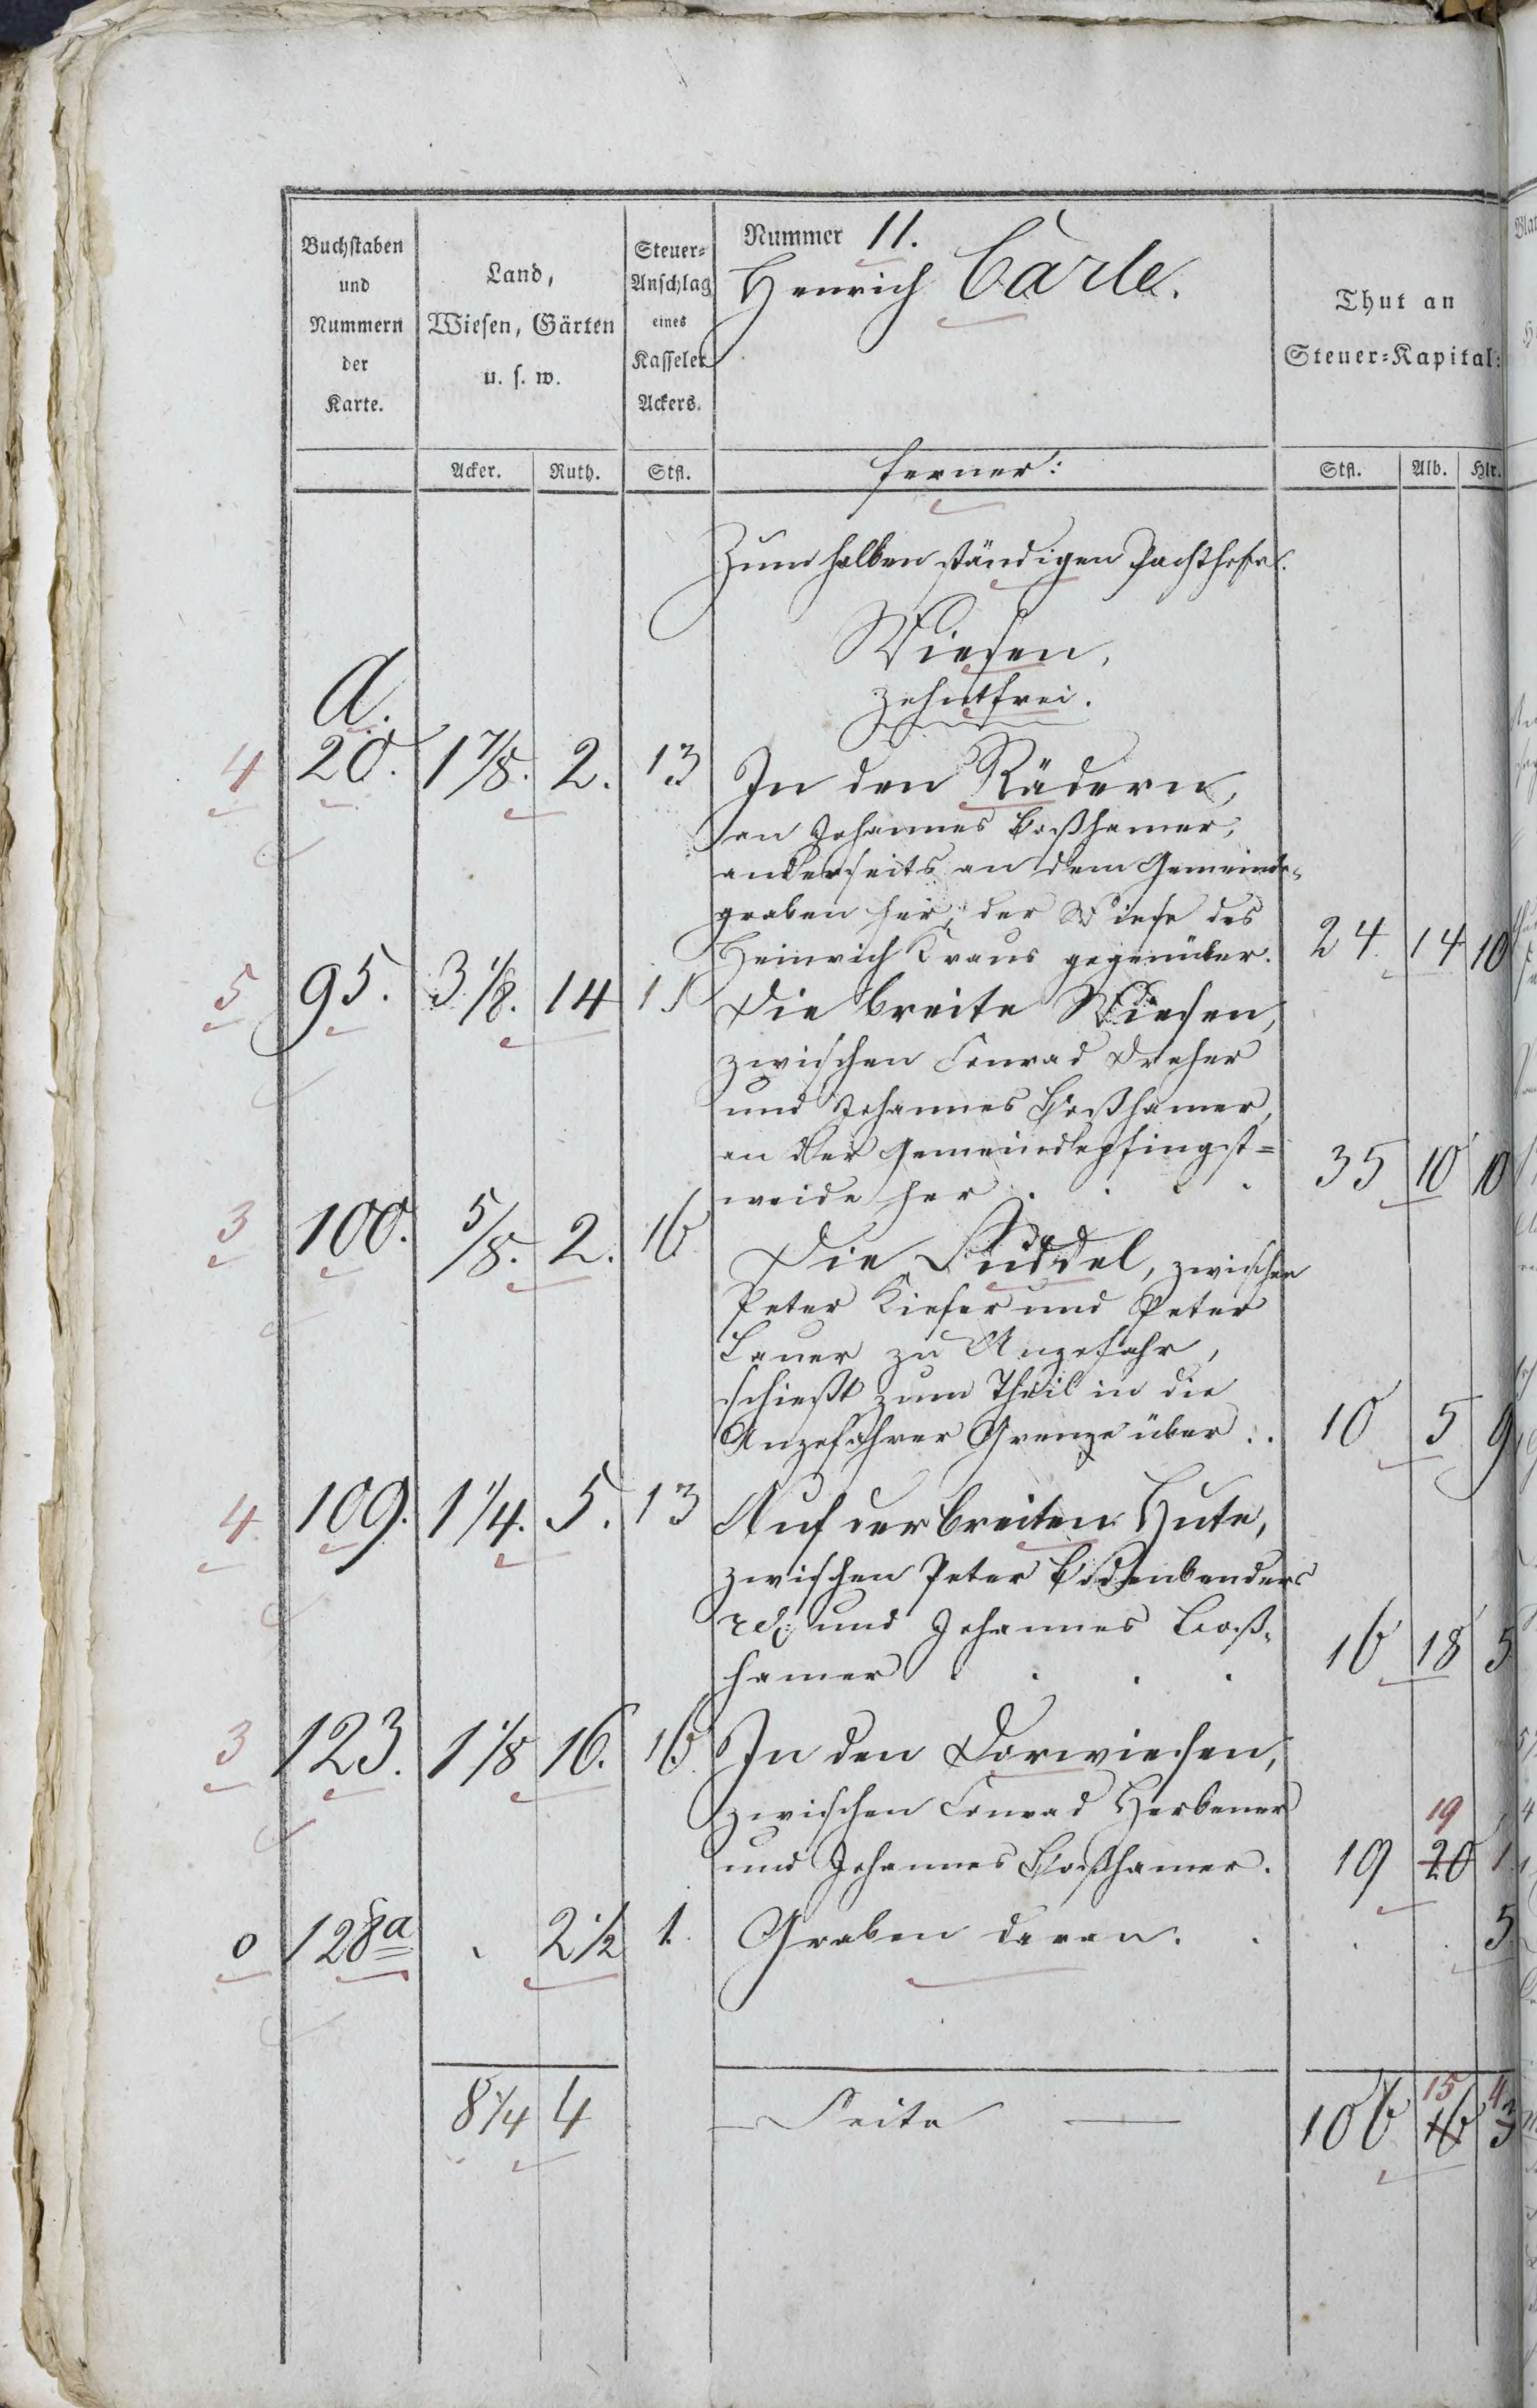 Buchstaben und Nummern der Karte.
Land, Wiesen, Gärten u. s. w.
Steuer-Anschlag eines Kasseler Ackers.
Nummer 11.
Henrich Carle.
Thut an Steuer-Kapital:
Acker. Ruth. Stfl. ferner: Stfl. Alb. Hlr.
Zum halben ständigen Pachthofe.
Wiesen,
zehntfrei.
A.
4 20. 1 7/8. 2. 13 In den Rädern,
an Johannes Boßhamer,
anderseits an dem Gemeinde-
graben her, der Wiese des
Heinrich Kraus gegenüber. 24 14 10
5 95. 3 1/8. 14 11 Die breite Wiesen,
zwischen Conrad Dreher
und Johannes Boßhamer,
an der Gemeindspfingst=
weide her . . . . 35 10 10
3 100. 5/8. 2. 16 Die Suddel, zwischen
Peter Kiefer und Peter
Lauer zu Anzefahr,
schießt zum Theil in die
Anzefahrer Grenze über . . 10 5 9
4 109. 1 1/4. 5. 13 Auf der breiten Hute,
zwischen Peter Bodenbenders
rel: und Johannes Boß-
hamer . . . . 16 18 5
3 123. 1 1/8 16. 16. In den Dorwiesen,
zwischen Conrad Herbener
19
und Johannes Boßhamer. 19 20 1
0 128a . 2 1/2 1. Graben daran. . . . 5
15 4
8 1/4 4 Seite 106 16 3